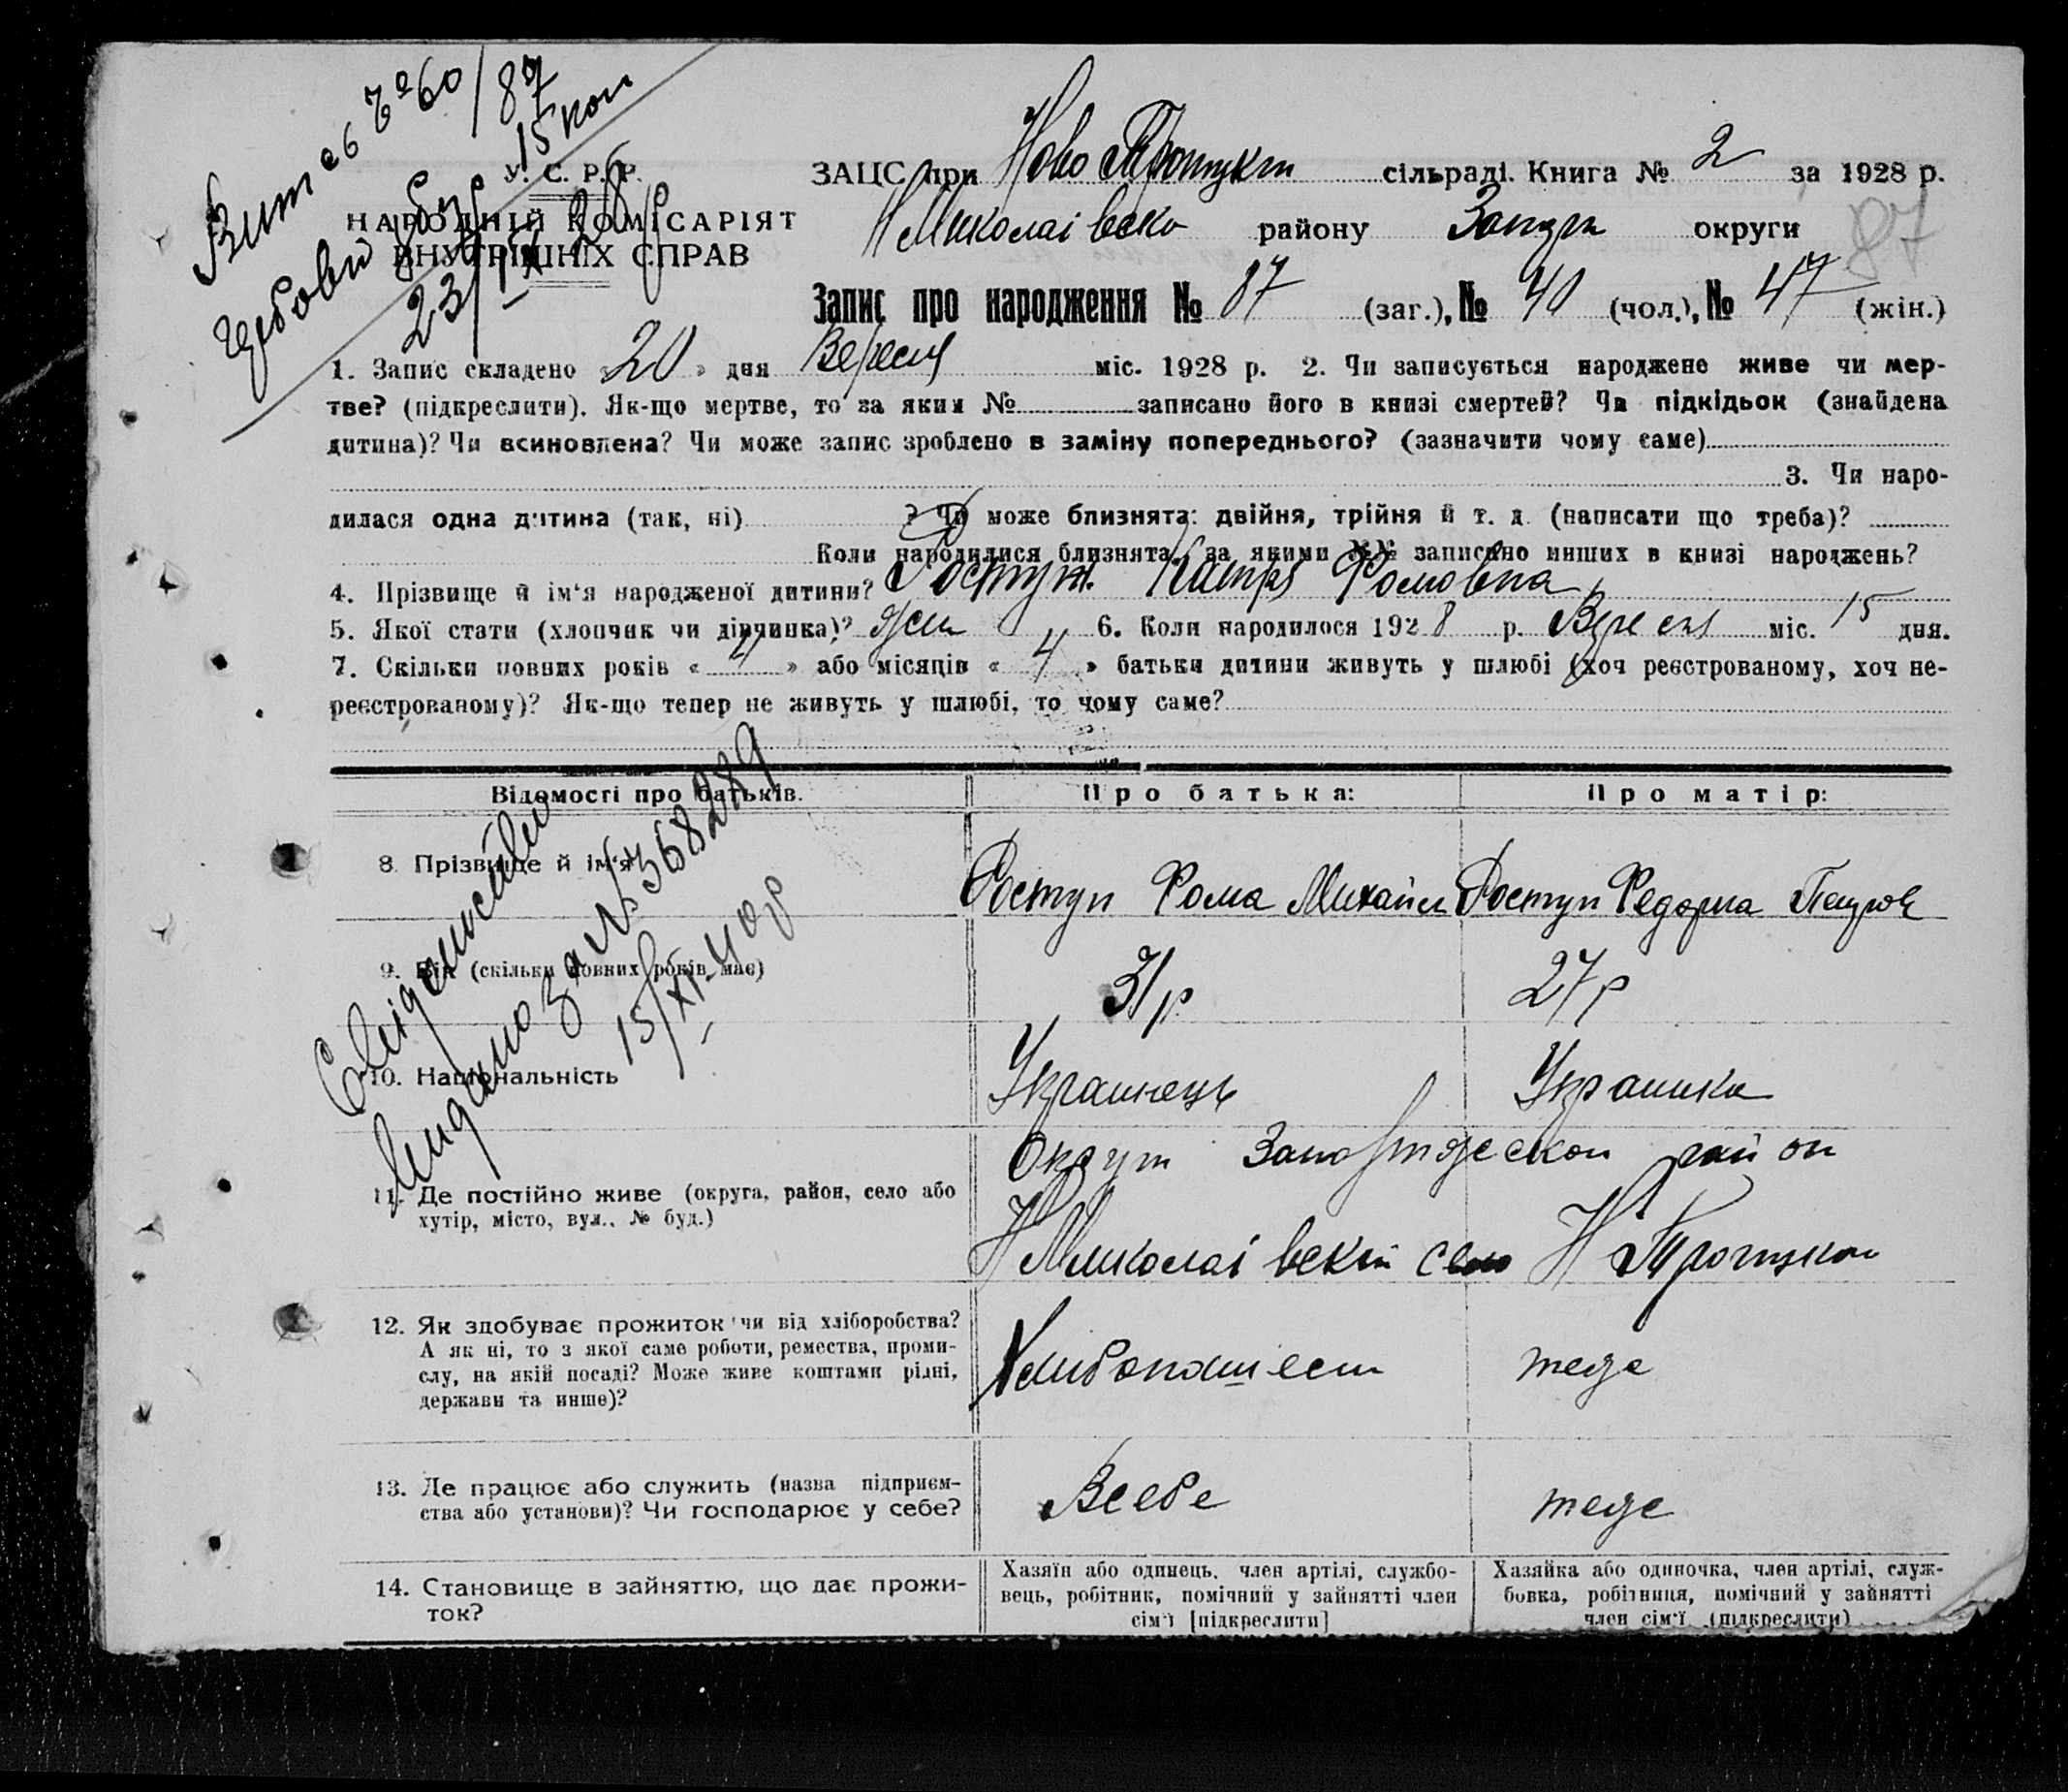 15 коп
23/IX 28 р
У. С. Р. Р.
НАРОДНІЙ КОМІСАРІЯТ
ВНУТРІШНІХ СПРАВ
ЗАЦС при Ново сільраді. Книга № 2 за 1928 р.
НМиколаівско району Запорі округи
87
Запис про народження № 87 (заг.), № 40 (чол.), № 47 (жін.)
1. Запис складено « 20 » дня Вересня міс. 1928 р. 2. Чи записується народжене живе чи мер-
тве? (підкреслити). Як-що мертве, то за яким № записано його в книзі смертей? Чи підкідьок (знайдена
дитина)? Чи всиновлена? Чи може запис зроблено в заміну попереднього? (зазначити чому саме)
3. Чи наро-
дилася одна дитина (так, ні) ? Чи може близнята: двійня, трійня й т. д. (написати що треба)?
Коли народилися близнята, за якими №№ записано инших в книзі народжень?
4. Прізвище й ім'я народженої дитини? Ростун Фомовна
5. Якої стати (хлопчик чи дівчинка)? жен 6. Коли народилося 1928 р. Вересня міс. 15 дня.
7. Скільки повних років « 4 » або місяців « 4 » батьки дитини живуть у шлюбі (хоч реєстрованому, хоч не-
реєстрованому)? Як-що тепер не живуть у шлюбі, то чому саме?
Відомості про батьків. Про батька: Про матір:
8. Прізвище й ім'я Ростун Фома Михайл Ростун Федорка Петров
9. Вік (скільки повних років має) 31 р 27 р
10. Національність Украинець Украинка
Округ район
11. Де постійно живе (округа, район, село або
хутір, місто, вул., № буд.)
НМиколаівскій село Н
12. Як здобуває прожиток чи від хліборобства?
А як ні, то з якої саме роботи, ремества, проми-
слу, на якій посаді? Може живе коштами рідні,
держави та инше)?
теже
13. Де працює або служить (назва підприєм-
ства або установи)? Чи господарює у себе?
Всебе теже
14. Становище в зайняттю, що дає прожи-
ток?
Хазяїн або одинець, член артілі, службо-
вець, робітник, помічний у зайнятті член
сім'ї [підкреслити]
Хазяйка або одиночка, член артілі, служ-
бовка, робітниця, помічний у зайнятті
член сім'ї (підкреслити)
за № 368289
15/XI-40 р